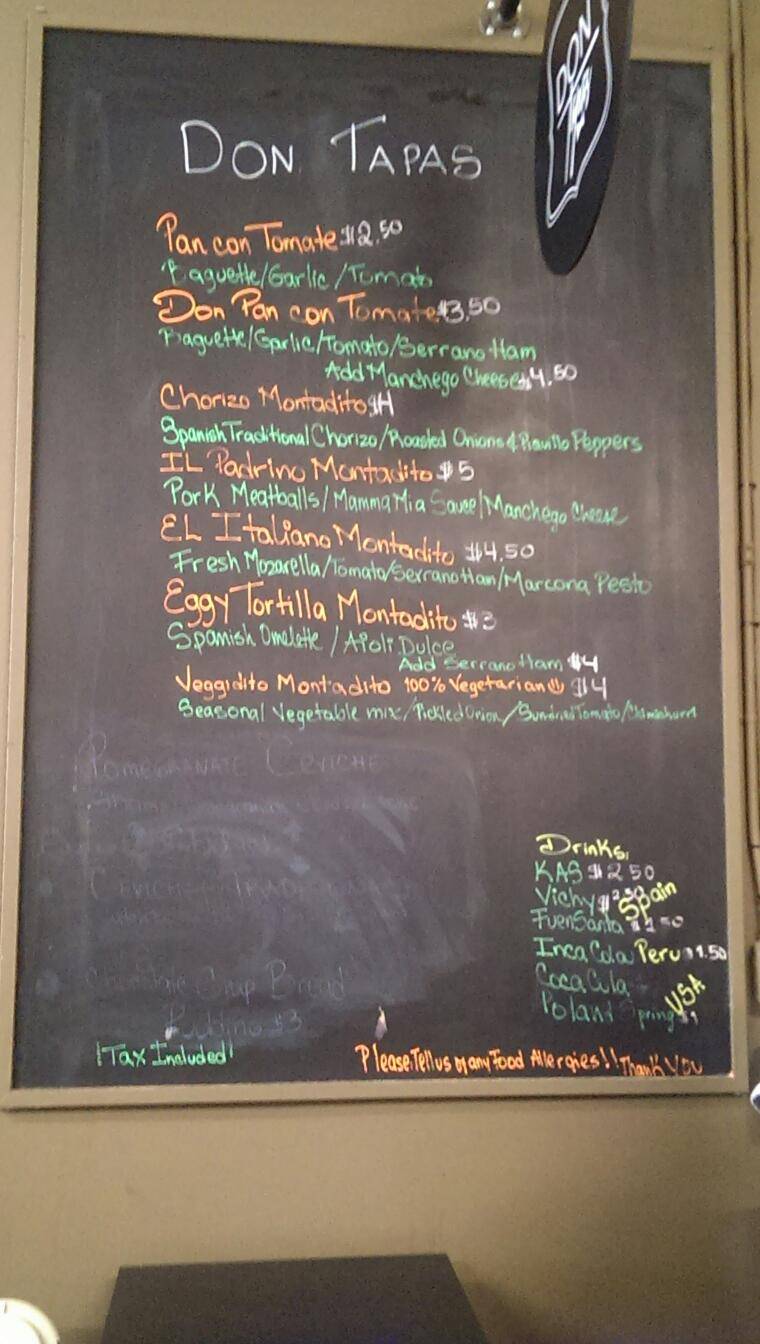 DON
DON TAPAS
Pan con Tomate $2.50
Baguette/Garlic/Tomato
Don Pan con Tomate $3.50
Baguette/Garlic/Tomato/Serrano Ham
Add Manchego Cheese $4.50
Chorizo Montadito $4
Spanish Traditional Chorizo/Roasted Onions & Piquillo Peppers
IL Padrino Montadito $5
Pork Meatballs/Mamma Mia Sauce/Manchego Cheese
EL Italiano Montadito $4.50
Fresh Mozarella/Tomato/Serrano Ham/Marcona Pesto
Eggy Tortilla Montadito $3
Spanish Omelette / Aioli Dulce
Add Serrano Ham $4
Veggidito Montadito 100% Vegetarian $4
Seasonal Vegetable mix/Pickled Onion/Sundried Tomato/
POMEGRANATE CEVICHE
Bread
Pudding $3
Drinks:
KAS $2.50
Vichy $2.50 Spain
FuenSanta
Inca Cola Peru $1.50
Coca Cola
Poland Spring $1 USA
!Tax Included!
Please Tell us of any Food Allergies!! Thank You